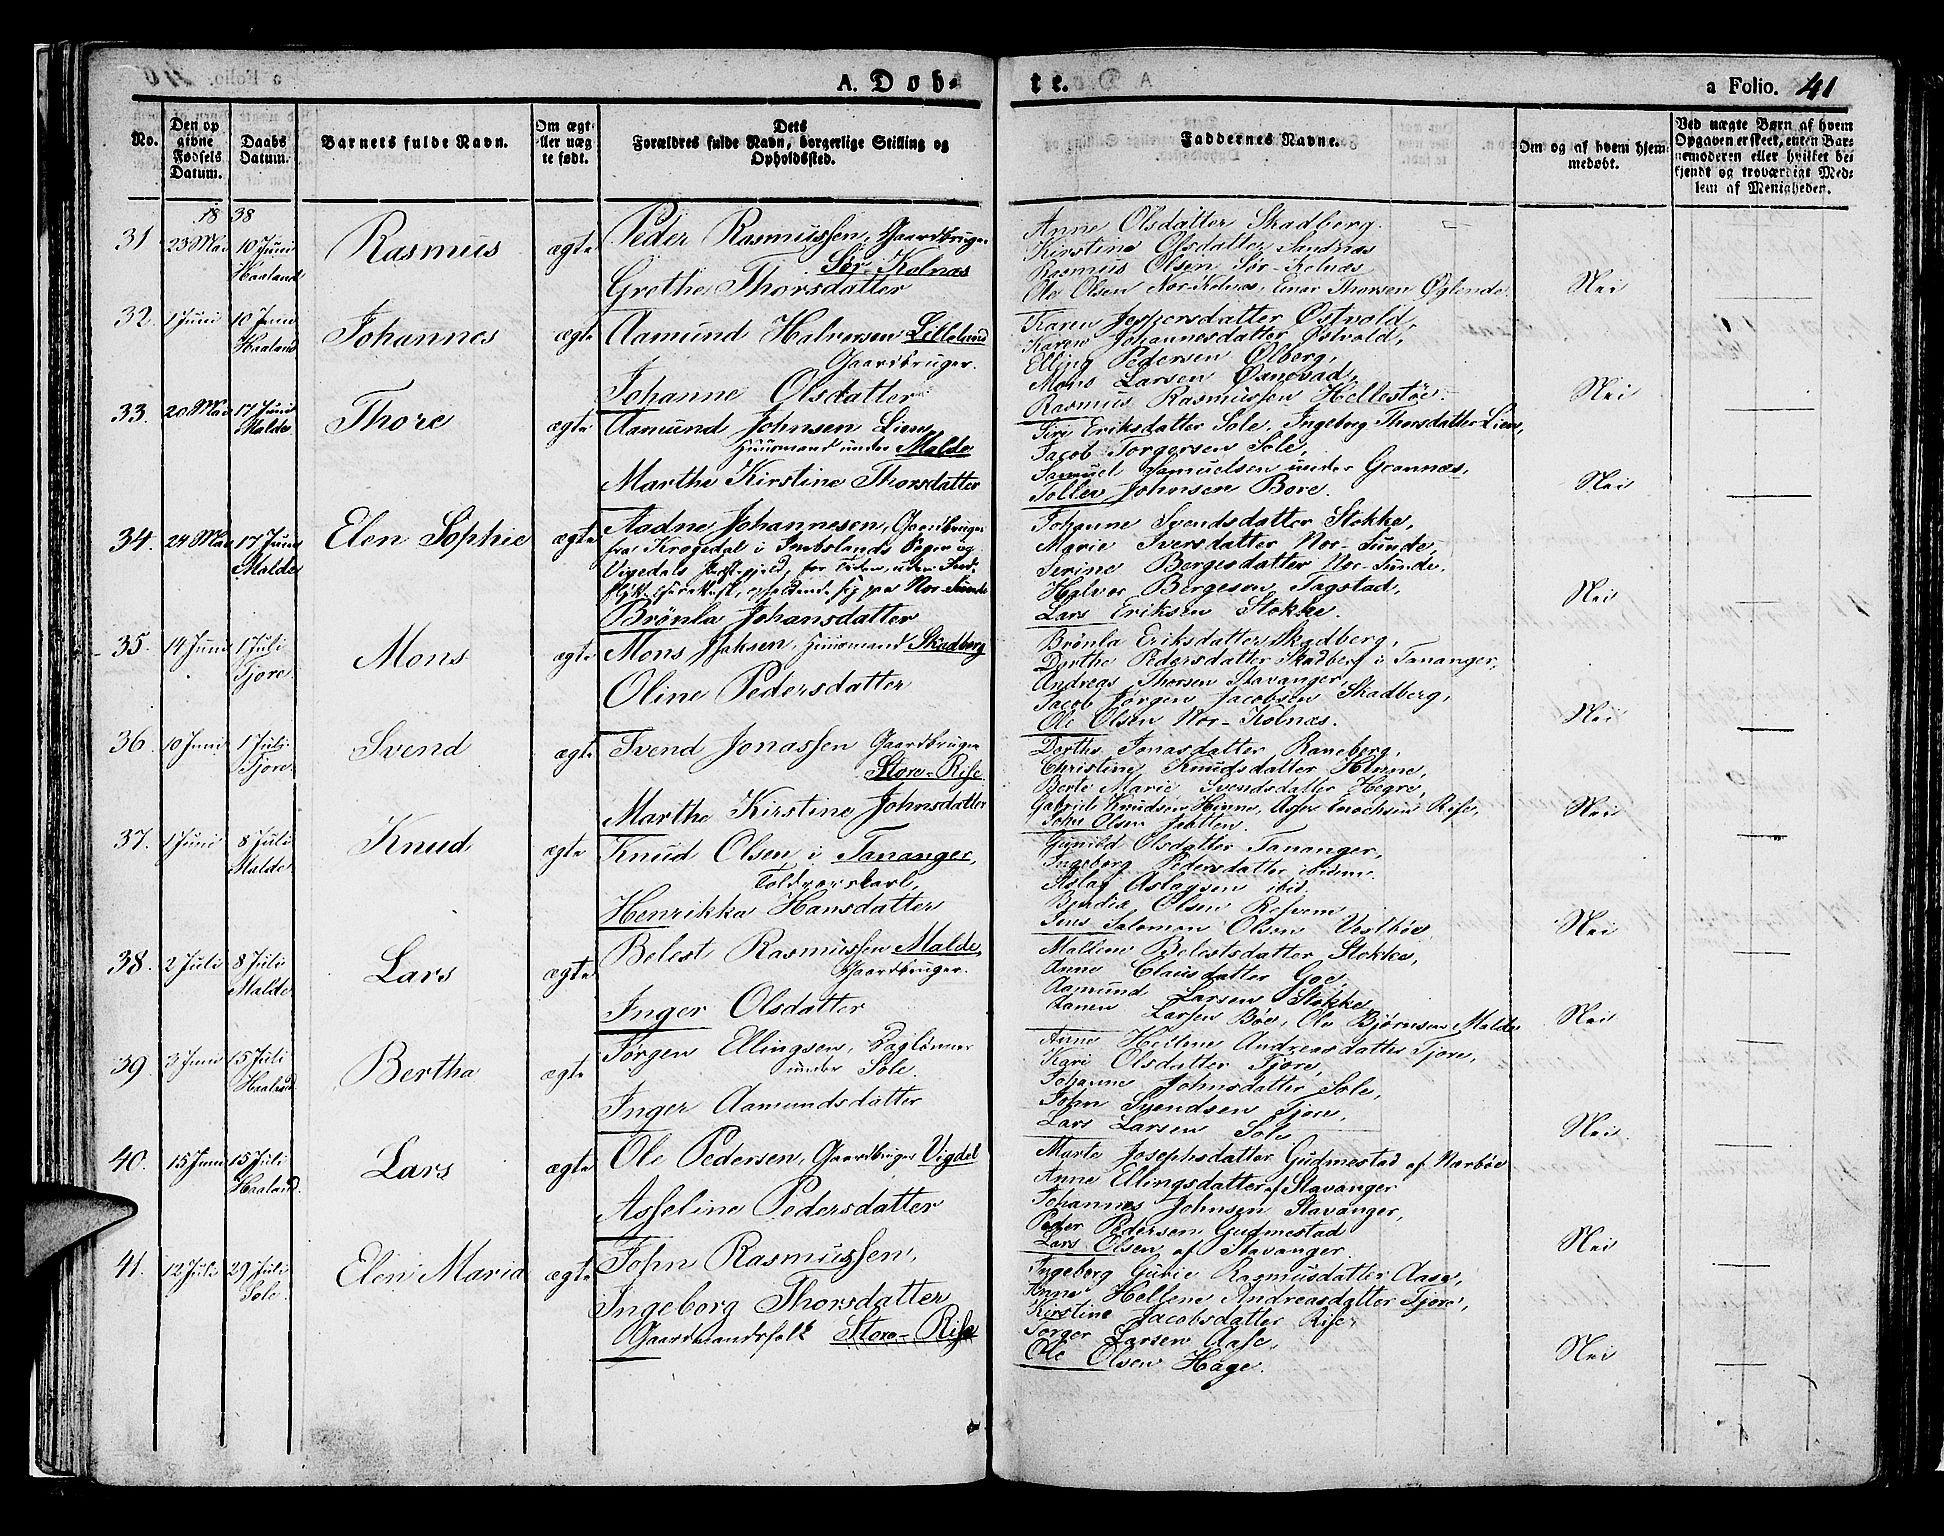 A. Døb-
te.
a Folio. 41
No.
Den opgivne Fødsels Datum.
Daabs Datum.
Barnets fulde Navn.
Om ægteller uægte født.
Dets Forældres fulde Navn, borgerlige Stilling og Opholdssted.
Faddernes Navne.
Om og af hvem hjemmedøbt.
Ved uægte Børn af hvem Opgaven er skeet, enten Barnemoderen eller hvilket bekjendt og troværdigt Medlem af Menigheden.
1838
31 23 Mai 10 Juni Haaland Rasmus ægte
Peder Rasmussen, Gaardbruger
Sør-Kolnæs
Grethe Thorsdatter
Anne Olsdatter Skadberg.
Kirstine Olsdatter Sandnæs
Rasmus Olsen Sør-Kolnæs
Ole Olsen Nor-Kolnæs, Einar Thorsen Øglende.
Nei
32. 1 Juni 10 Juni Haaland Johannes ægte
Aamund Halvorsen Lilleland
Gaardbruger.
Johanne Olsdatter
Karen Jospersdatter Østvold,
Karen Johannesdatter Østvold,
Elling Pedersen Ølberg,
Mons Larsen Øxnevad,
Rasmus Rasmussen Hellestøe.
Nei
33. 20 Mai 17 Juni Malde Thore ægte
Aamund Johnsen Lien,
Huusmand under Malde
Marthe Kirstine Thorsdatter
Siri Eriksdatter Sole, Ingeborg Thorsdatter Lien,
Jacob Torgersen Sole,
Samuel Samuelsen under Grannæs,
Tollev Johnsen Bore.
Nei
34. 24 Mai 17 Juni Malde Elen Sophie ægte
Aadne Johannesen, Gaardbruger
fra Krogedal i Imslands Sogn og
Vigedals Præstegjeld, for Tiden, uden
opholdende sig paa Nor-Sunde
Brönla Johansdatter
Johanne Svendsdatter Stokke,
Marie Iversdatter Nor-Sunde,
Serine Børgesdatter Nor-Sunde,
Halvor Børgesen Tagstad,
Lars Eriksen Stokke.
Nei
35. 14 Juni 1 Juli Tjore Mons ægte
Mons Isaksen, Huusmand Skadberg
Oline Pedersdatter
Brönla Eriksdatter Skadberg,
Dorthe Pedersdatter Skadberg i Tananger,
Andreas Thorsen Stavanger,
Jacob Jørgen Jacobsen Skadberg,
Ole Olsen Nor-Kolnæs.
Nei
36. 10 Juni 1 Juli Tjore Svend ægte
Svend Jonassen Gaardbruger
Store-Risе
Marthe Kirstine Johnsdatter
Dorthe Jonasdatter Raneberg,
Christine Knudsdatter Hinne,
Berte Marie Svendsdatter Hegre,
Gabriel Knudsen Hinne, Enochsen Rise,
John Olsen Jaatten.
Nei
37. 1 Juni 8 Juli Malde Knud ægte
Knud Olsen i Tananger,
Toldvorskarl,
Henrikka Hansdatter
Gunild Olsdatter Tananger,
Ingeborg Pedersdatter ibidem.
Aslag Aslagsen ibid.
Bendix Olsen Refvem
Jens Salomon Olsen Vestbøe,
Nei
38. 2 Juli 8 Juli Malde Lars ægte
Belest Rasmussen Malde,
Gaardbruger.
Inger Olsdatter
Maltine Belestsdatter Stokke,
Anne Clausdatter Goe,
Aamund Larsen Stokke,
Larsen Bøe, Ole Bjørnsen Malde
Nei
39. 3 Juni 15 Juli Haaland Bertha ægte
Jørgen Ellingsen, Daglønner
under Sole.
Inger Aamundsdatter
Anne Hellene Andreasdatter Tjore,
Kari Olsdatter Tjore,
Johanne Johnsdatter Sole,
John Svendsen Tjore,
Lars Larsen Sole
Nei
40. 15 Juni 15 Juli Haaland. Lars ægte
Ole Pedersen, Gaardbruger Vigdel
Asseline Pedersdatter
Marte Josephsdatter Gudmestad af Narbøe
Anne Ellingsdatter af Stavanger
Johannes Johnsen Stavanger,
Peder Pedersen Gudmestad
Lars Olsen af Stavanger.
Nei
41. 12 Juli 29 Juli Sole. Elen Maria ægte
John Rasmussen,
Ingeborg Thorsdatter
Gaardmandsfolk Store-Rise
Ingeborg Gurie Rasmusdatter Aase,
Anne Hellene Andreasdatter Tjore,
Kirstine Jacobsdatter Rise,
Torger Larsen Aase,
Ole Olsen Hage.
Nei